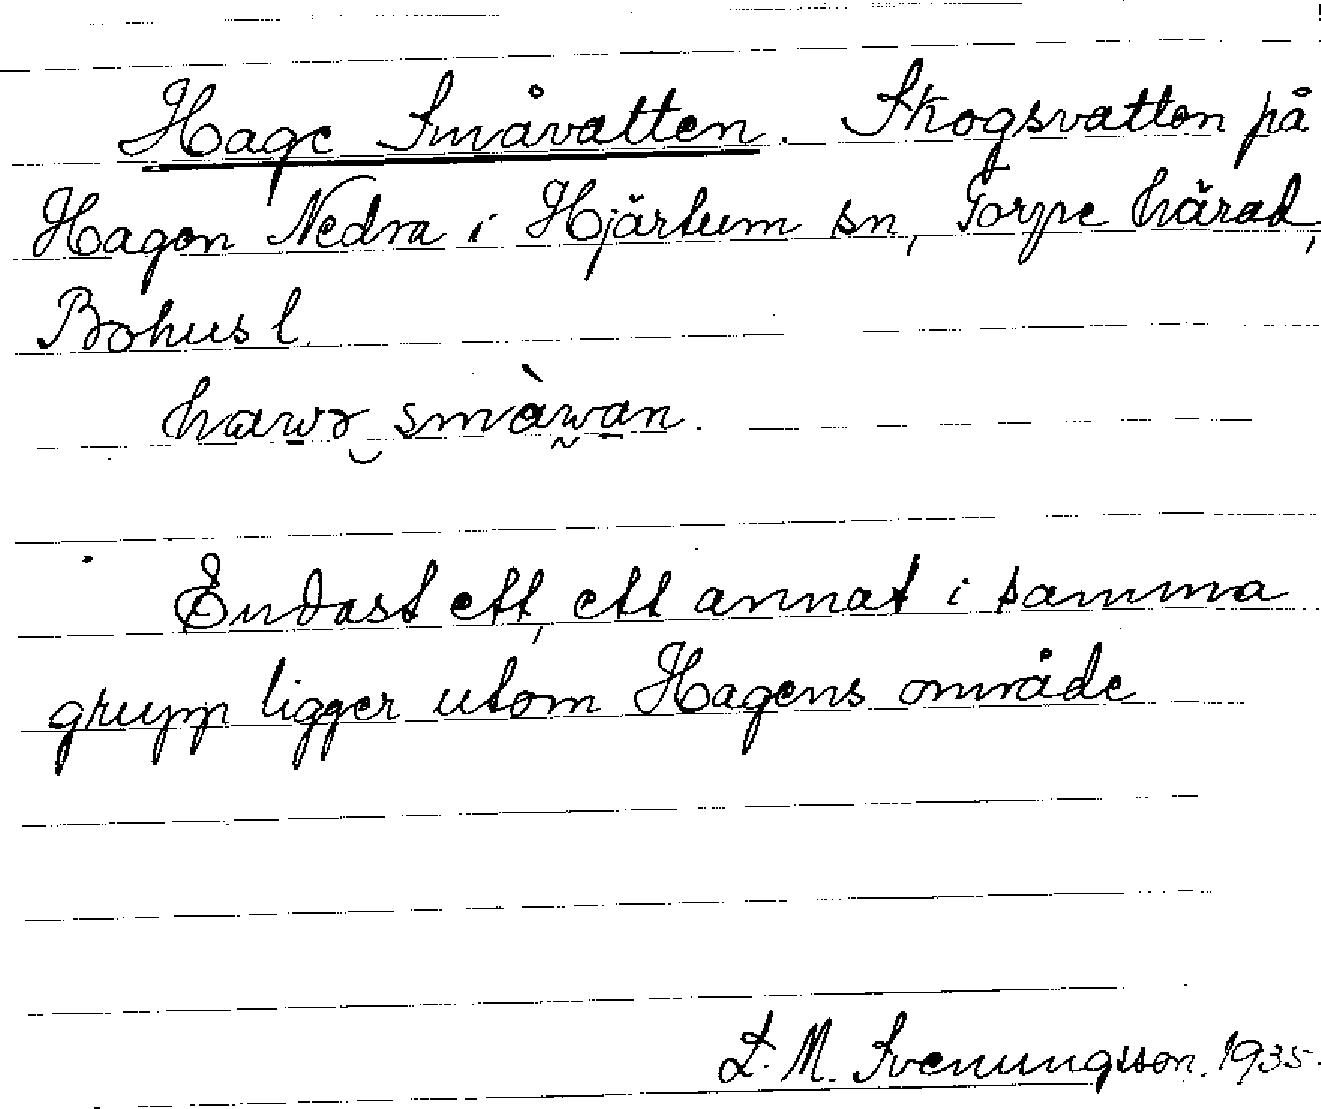 Hage Småvatten. Skogsvatten på
Hagen Nedra i Hjärtum sn, Torpe härad,
Bohusl.
hawə småwan.
Endast ett, ett annat i samma
grupp ligger utom Hagens område
S. M. Svenungsson. 1935.